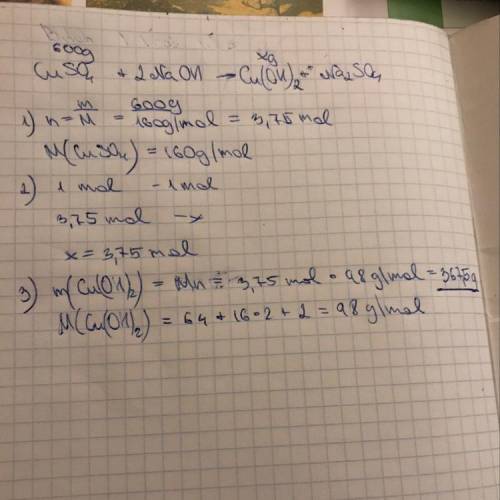 600g xg
CuSO4 + 2NaOH → Cu(OH)2 + Na2SO4
1) n = m/M = 600g/160g/mol = 3,75 mol
M(CuSO4) = 160g/mol
2) 1 mol - 1mol
3,75 mol → x
x = 3,75 mol
3) m(Cu(OH)2) = Mn = 3,75 mol · 98 g/mol = 367,5g
M(Cu(OH)2) = 64 + 16·2 + 2 = 98 g/mol